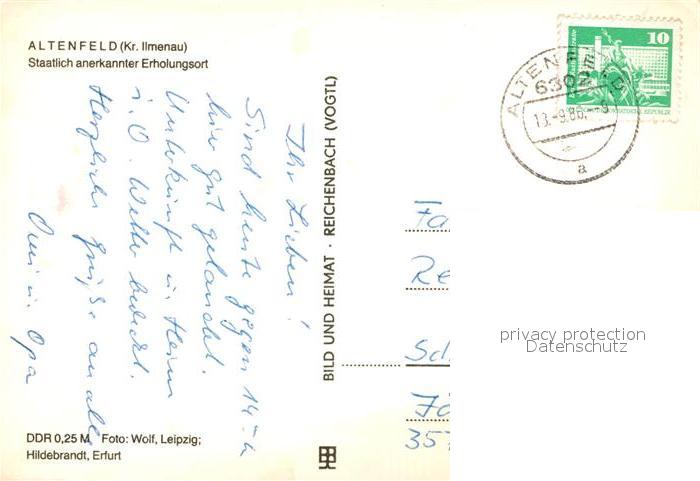 ALTENFELD (Kr. Ilmenau)
Staatlich anerkannter Erholungsort
Ihr Lieben!
Sind heute gegen 14 00
hier gut gelandet.
Unterkunft im Heim
i. O. Wetter bedeckt.
Herzliche Grüße an alle
Omi u. Opa
DDR 0,25 M Foto: Wolf, Leipzig;
Hildebrandt, Erfurt
BILD UND HEIMAT · REICHENBACH (VOGTL)
10
ALTENFELD
6302
13.-9.86.-9
a
Fa
Re
Sch
357
privacy protection
Datenschutz